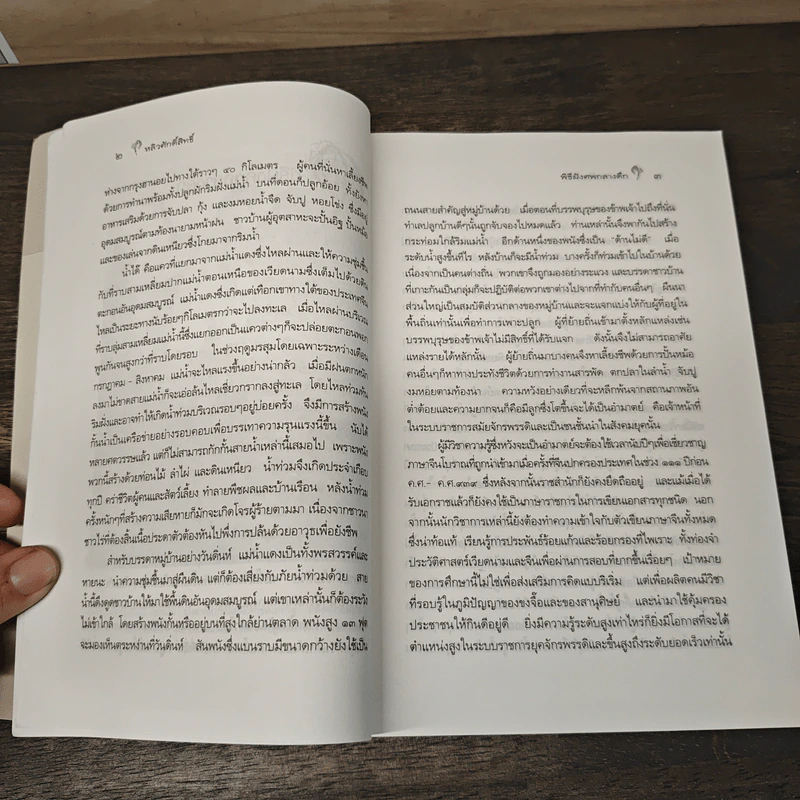 ๒ หลิวศักดิ์สิทธิ์
ห่างจากกรุงฮานอยไปทางใต้ราวๆ ๔๐ กิโลเมตร ผู้คนที่นั่นหาเลี้ยงชีพ
ด้วยการทำนาพร้อมทั้งปลูกผักริมฝั่งแม่น้ำ บนที่ดอนก็ปลูกอ้อย ทั้งยังหา
อาหารเสริมด้วยการจับปลา กุ้ง และงมหอยน้ำจืด จับปู หอยโข่ง ซึ่งมีอยู่
อุดมสมบูรณ์ตามท้องนายามหน้าฝน ชาวบ้านผู้อุตสาหะจะปั้นอิฐ ปั้นหม้อ
และของเล่นจากดินเหนียวซึ่งโกยมาจากริมน้ำ
น้ำได้ คือแควที่แยกมาจากแม่น้ำแดงซึ่งไหลผ่านและให้ความชุ่มชื้น
กับที่ราบสามเหลี่ยมปากแม่น้ำตอนเหนือของเวียดนามซึ่งเต็มไปด้วยดิน
ตะกอนอันอุดมสมบูรณ์ แม่น้ำแดงซึ่งเกิดแต่เทือกเขาทางใต้ของประเทศจีน
ไหลเป็นระยะทางนับร้อยๆกิโลเมตรกว่าจะไปลงทะเล เมื่อไหลผ่านบริเวณ
ที่ราบลุ่มสามเหลี่ยมแม่น้ำนี้ซึ่งแยกออกเป็นแควต่างๆก็จะปล่อยตะกอนพอก
พูนกันจนสูงกว่าที่ราบโดยรอบ ในช่วงฤดูมรสุมโดยเฉพาะระหว่างเดือน
กรกฎาคม - สิงหาคม แม่น้ำจะไหลแรงขึ้นอย่างน่ากลัว เมื่อมีฝนตกหนัก
ลงมาไม่ขาดสายแม่น้ำก็จะเอ่อล้นไหลเชี่ยวกรากลงสู่ทะเล โดยไหลท่วมล้น
ริมฝั่งและอาจทำให้เกิดน้ำท่วมบริเวณรอบๆอยู่บ่อยครั้ง จึงมีการสร้างพนัง
กั้นน้ำเป็นเครือข่ายอย่างรอบคอบเพื่อบรรเทาความรุนแรงนี้ขึ้น นับได้
หลายศตวรรษแล้ว แต่ก็ไม่สามารถกักกั้นสายน้ำเหล่านี้เสมอไป เพราะพนัง
พวกนี้สร้างด้วยท่อนไม้ ลำไผ่ และดินเหนียว น้ำท่วมจึงเกิดประจำเกือบ
ทุกปี คร่าชีวิตผู้คนและสัตว์เลี้ยง ทำลายพืชผลและบ้านเรือน หลังน้ำท่วม
ครั้งหนักๆที่สร้างความเสียหายก็มักจะเกิดโจรผู้ร้ายตามมา เนื่องจากชาวนา
ชาวไร่ที่ต้องสิ้นเนื้อประดาตัวต้องหันไปพึ่งการปล้นด้วยอาวุธเพื่อยังชีพ
สำหรับบรรดาหมู่บ้านอย่างวันดินห์ แม่น้ำแดงเป็นทั้งพรสวรรค์และ
หายนะ นำความชุ่มชื้นมาสู่ผืนดิน แต่ก็ต้องเสี่ยงกับภัยน้ำท่วมด้วย สาย
น้ำนี้ดึงดูดชาวบ้านให้มาใช้พื้นดินอันอุดมสมบูรณ์ แต่เขาเหล่านั้นก็ต้องระวัง
ไม่เข้าใกล้ โดยสร้างพนังกั้นหรืออยู่บนที่สูงใกล้ย่านตลาด พนังสูง ๑๓ ฟุต
จะมองเห็นตระหง่านที่วันดินห์ สันพนังซึ่งแบนราบมีขนาดกว้างยังใช้เป็น
พิธีฝังศพกลางดึก ๓
ถนนสายสำคัญสู่หมู่บ้านด้วย เมื่อตอนที่บรรพบุรุษของข้าพเจ้าไปถึงที่นั่น
ทำเลปลูกบ้านดีๆนั้นถูกจับจองไปหมดแล้ว ท่านเหล่านั้นจึงพากันไปสร้าง
กระท่อมใกล้ริมแม่น้ำ อีกด้านหนึ่งของพนังซึ่งเป็น "ด้านไม่ดี" เมื่อ
ระดับน้ำสูงขึ้นทีไร หลังบ้านก็จะมีน้ำท่วม บางครั้งก็ท่วมเข้าไปในบ้านด้วย
เนื่องจากเป็นคนต่างถิ่น พวกเขาจึงถูกมองอย่างระแวง และบรรดาชาวบ้าน
ที่เกาะกันเป็นกลุ่มก็จะปฏิบัติต่อพวกเขาต่างไปจากที่ทำกับคนอื่นๆ ผืนนา
ส่วนใหญ่เป็นสมบัติส่วนกลางของหมู่บ้านและจะแจกเบ่งให้กับผู้ที่อยู่ใน
พื้นถิ่นเท่านั้นเพื่อทำการเพาะปลูก ผู้ที่ย้ายถิ่นเข้ามาตั้งหลักแหล่งเช่น
บรรพบุรุษของข้าพเจ้าไม่มีสิทธิ์ที่ได้รับแจก ดังนั้นจึงไม่สามารถอาศัย
แหล่งรายได้หลักนั้น ผู้ย้ายถิ่นมาบางคนจึงหาเลี้ยงชีพด้วยการปั้นหม้อ
คนอื่นๆก็หาทางประทังชีวิตด้วยการทำงานสารพัด ตกปลาในลำน้ำ จับปู
งมหอยตามท้องนา ความหวังอย่างเดียวที่จะหลีกพ้นจากสถานภาพอัน
ต่ำต้อยและความยากจนก็คือมีลูกซึ่งโตขึ้นจะได้เป็นอำมาตย์ คือเจ้าหน้าที่
ในระบบราชการสมัยจักรพรรดิและเป็นชนชั้นนำในสังคมยุคนั้น
ผู้มีวิชาความรู้ซึ่งหวังจะเป็นอำมาตย์จะต้องใช้เวลานับปีๆเพื่อเชี่ยวชาญ
ภาษาจีนโบราณที่ถูกนำเข้ามาเมื่อครั้งที่จีนปกครองประเทศในช่วง ๑๑๑ ปีก่อน
ค.ศ.- ค.ศ.๙๓๙ ซึ่งหลังจากนั้นราชสำนักก็ยังคงยึดถืออยู่ และแม้เมื่อได้
รับเอกราชแล้วก็ยังคงใช้เป็นภาษาราชการในการเขียนเอกสารทุกชนิด นอก
จากนั้นนักวิชาการเหล่านี้ยังต้องทำความเข้าใจกับตัวเขียนภาษาจีนทั้งหมด
ซึ่งน่าท้อแท้ เรียนรู้การประพันธ์ร้อยแก้วและร้อยกรองที่ไพเราะ ทั้งท่องจำ
ประวัติศาสตร์เวียดนามและจีนเพื่อผ่านการสอบที่ยากขึ้นเรื่อยๆ เป้าหมาย
ของการศึกษานี้ไม่ใช่เพื่อส่งเสริมการคิดแบบริเริ่ม แต่เพื่อผลิตคนมีวิชา
ที่รอบรู้ในภูมิปัญญาของขงจื๊อและของสานุศิษย์ และนำมาใช้คุ้มครอง
ประชาชนให้กินดีอยู่ดี ยิ่งมีความรู้ระดับสูงเท่าไหร่ก็ยิ่งมีโอกาสที่จะได้
ตำแหน่งสูงในระบบราชการยุคจักรพรรดิและขึ้นสูงถึงระดับยอดเร็วเท่านั้น